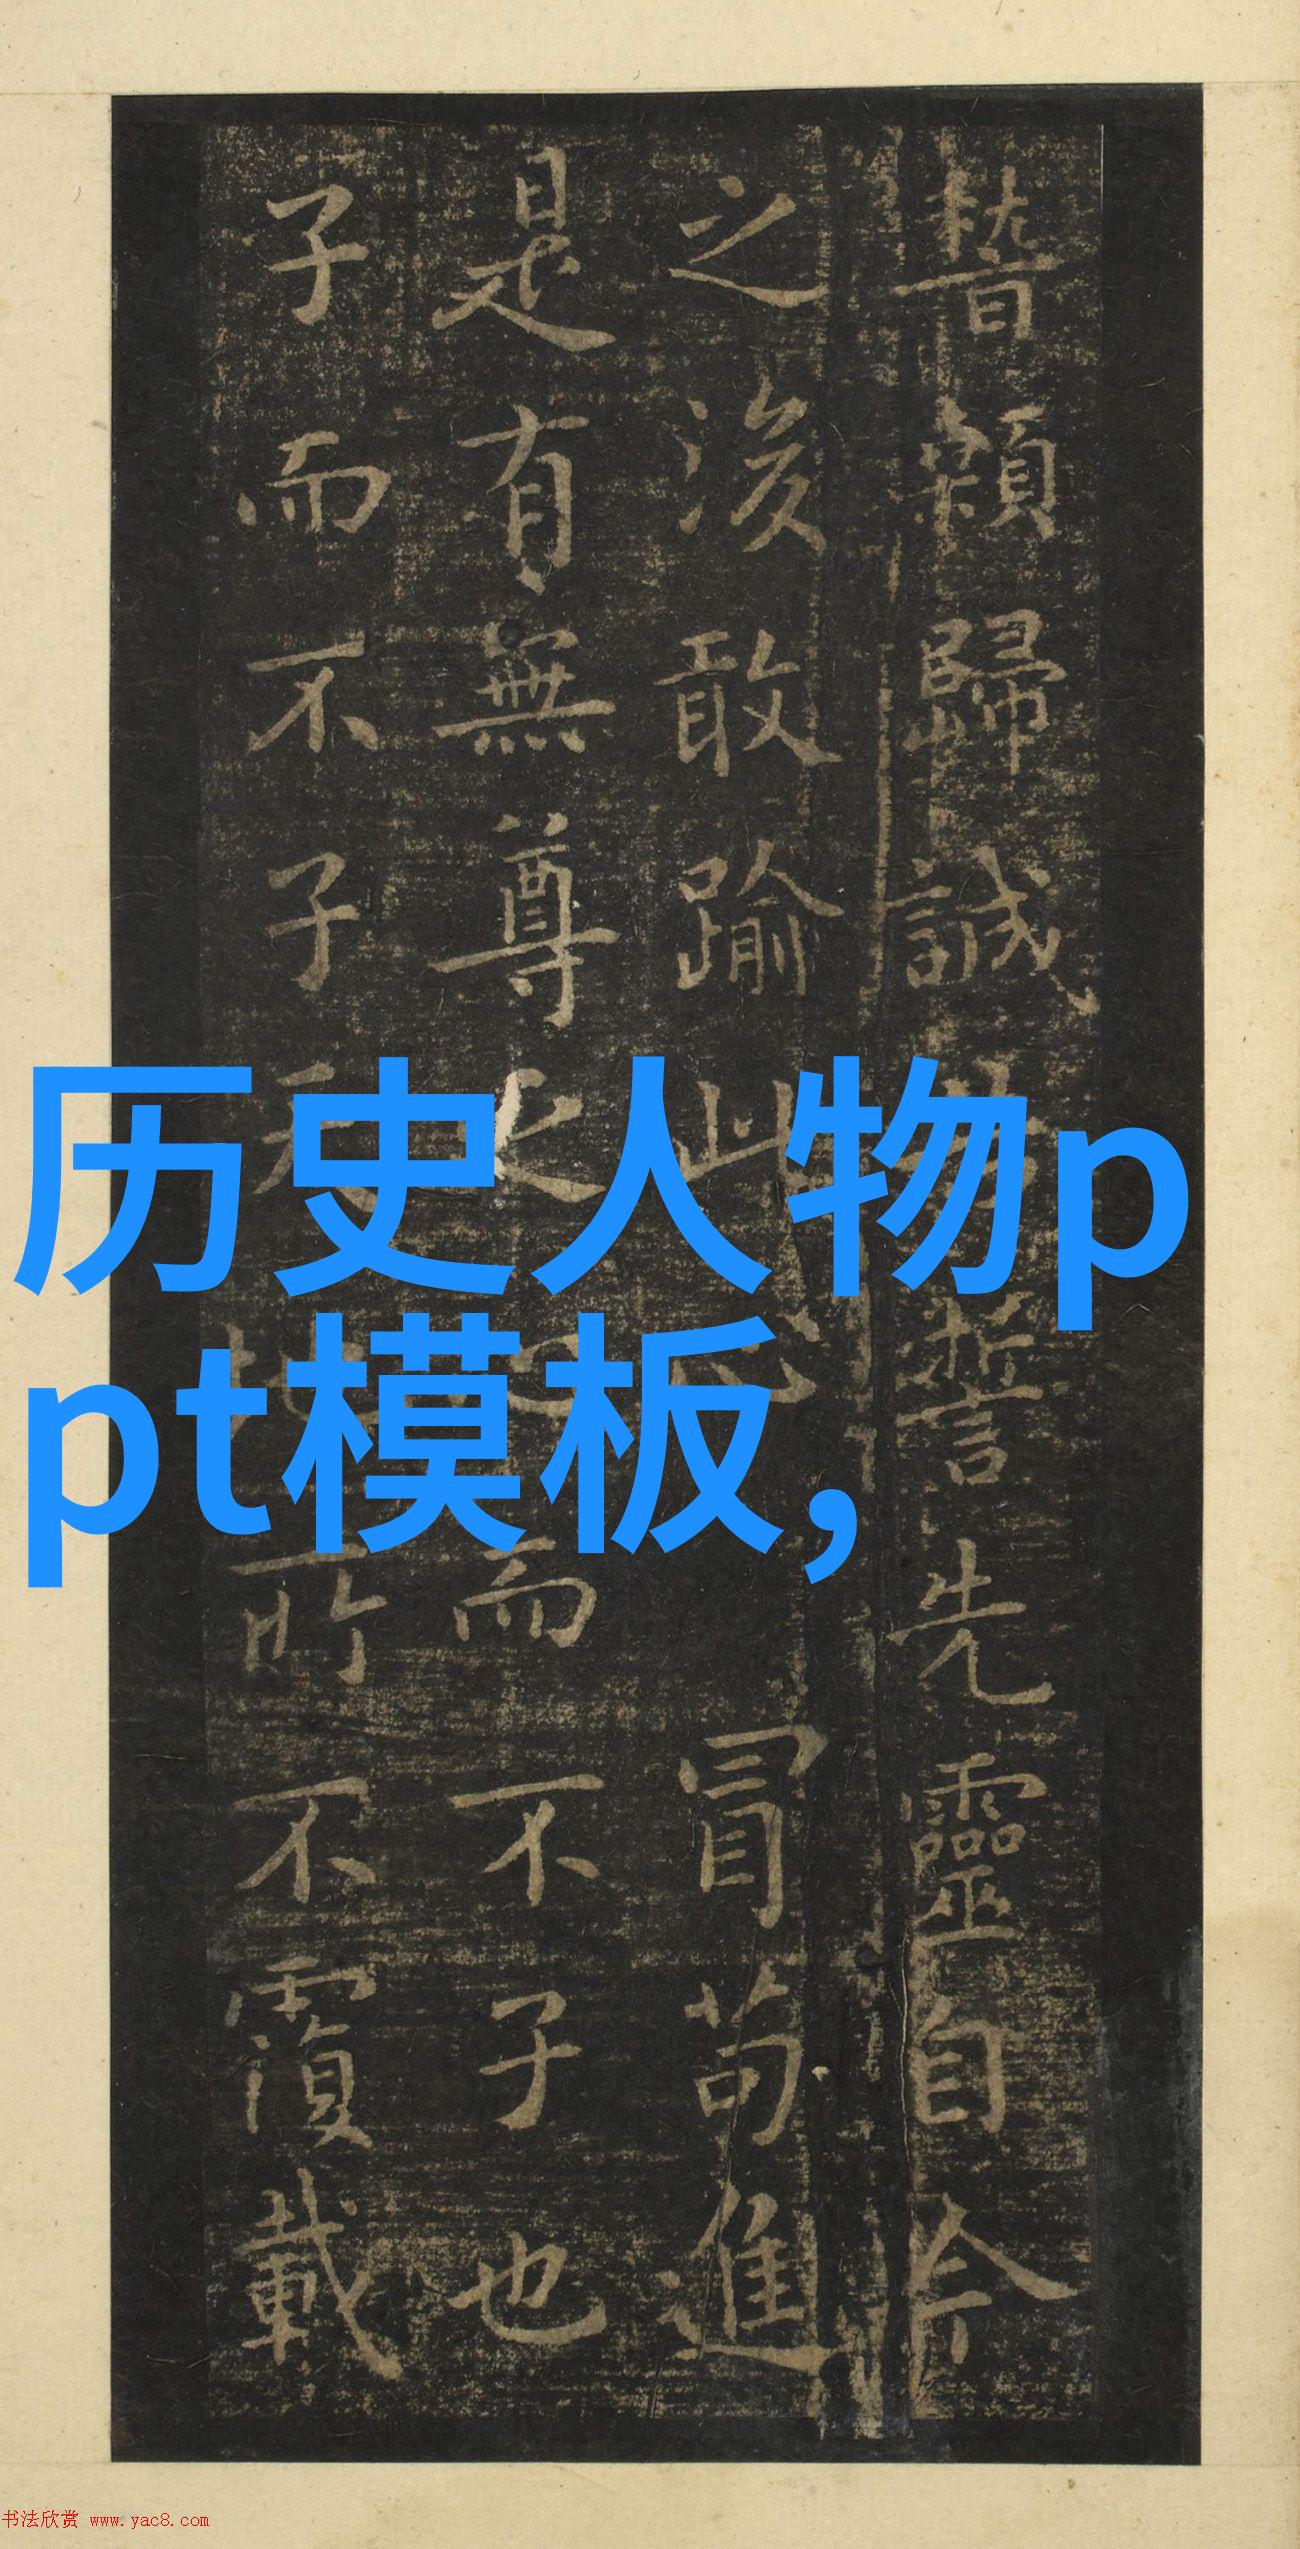 稽顙歸誠告誓先靈自今
之後敢踰此心冒苟進
是有無尊之心而不子也
子而不子天地所不覆載
历史人物p
pt模板,
书法欣赏 www.yac8.com